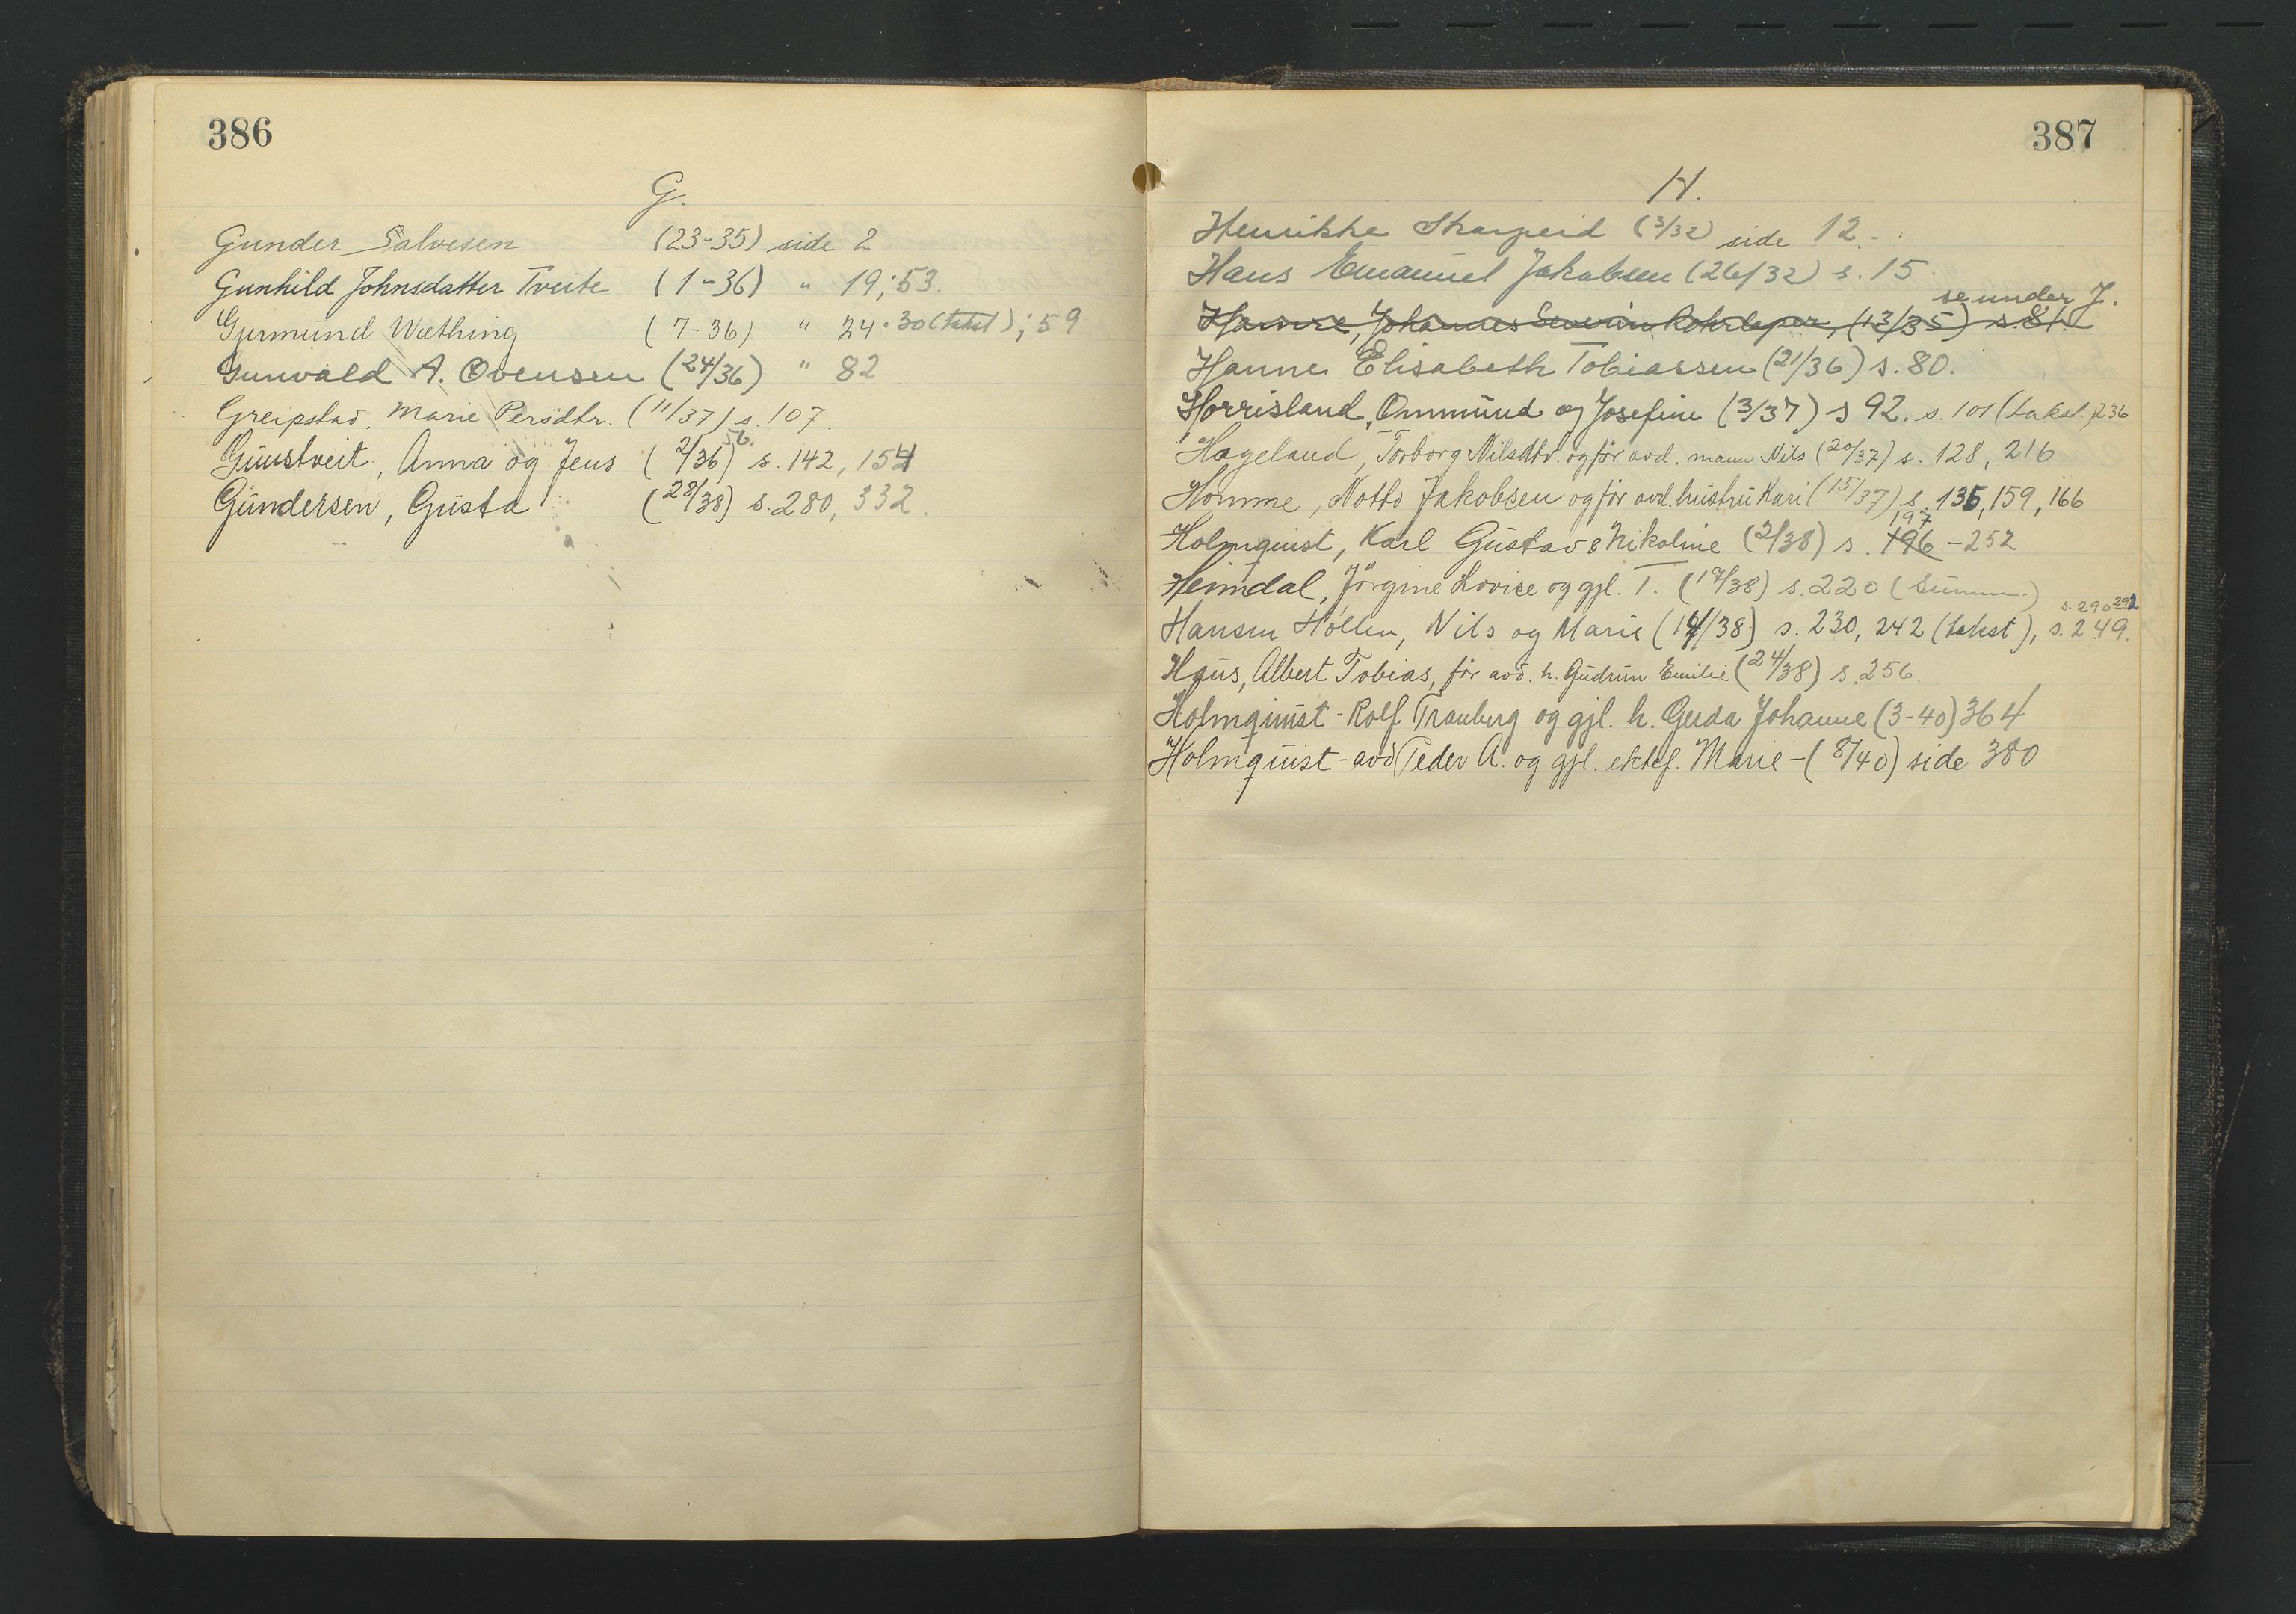 386
G.
Gunder Salvesen (23-35) side 2
Gunhild Johnsdatter Tveite (1-36) " 19; 53.
Gjermund Wæthing (7-36) " 24. 30 (takst); 59
Gunvald A. Ovensen (24/36) " 82
Greipstad, Marie Persdtr. (11/37) s. 107.
56.
Guustveit, Anna og Jens (2/36) s. 142, 154
Gundersen, Gusta (28/38) s. 280, 332.
387
H.
Henrikke Skarpeid (3/32) side 12.
Hans Emanuel Jakobsen (26/32) s. 15.
se under J.
Hamre, Johannes Severin (13/35) s. 81.
Hanne Elisabeth Tobiassen (21/36) s. 80.
Horrisland, Ommund og Josefine (3/37) s 92. s. 101 (takst) 236
Hageland, Torborg Nilsdtr. og for avd. mann Nils (20/37) s. 128, 216
Homme, Notto Jakobsen og for avd. hustru Kari (15/37) s. 135, 159, 166
197
Holmquist, Karl Gustav & Nikoline (2/38) s. 196 - 252
Heimdal, Jørgine Lovise og gjl. T. (17/38) s. 220 (Summ.)
s. 290 292
Hansen Hollen, Nils og Marie (14/38) s. 230, 242 (takst), s. 249.
Haus, Albert Tobias, for avd. h. Gudrun Emilie (24/38) s. 256.
Holmquist - Rolf Trauberg og gjl. h. Gerda Johanne (3-40) 364
Holmquist - avd Peder A. og gjl. ektef. Marie - (8/40) side 380